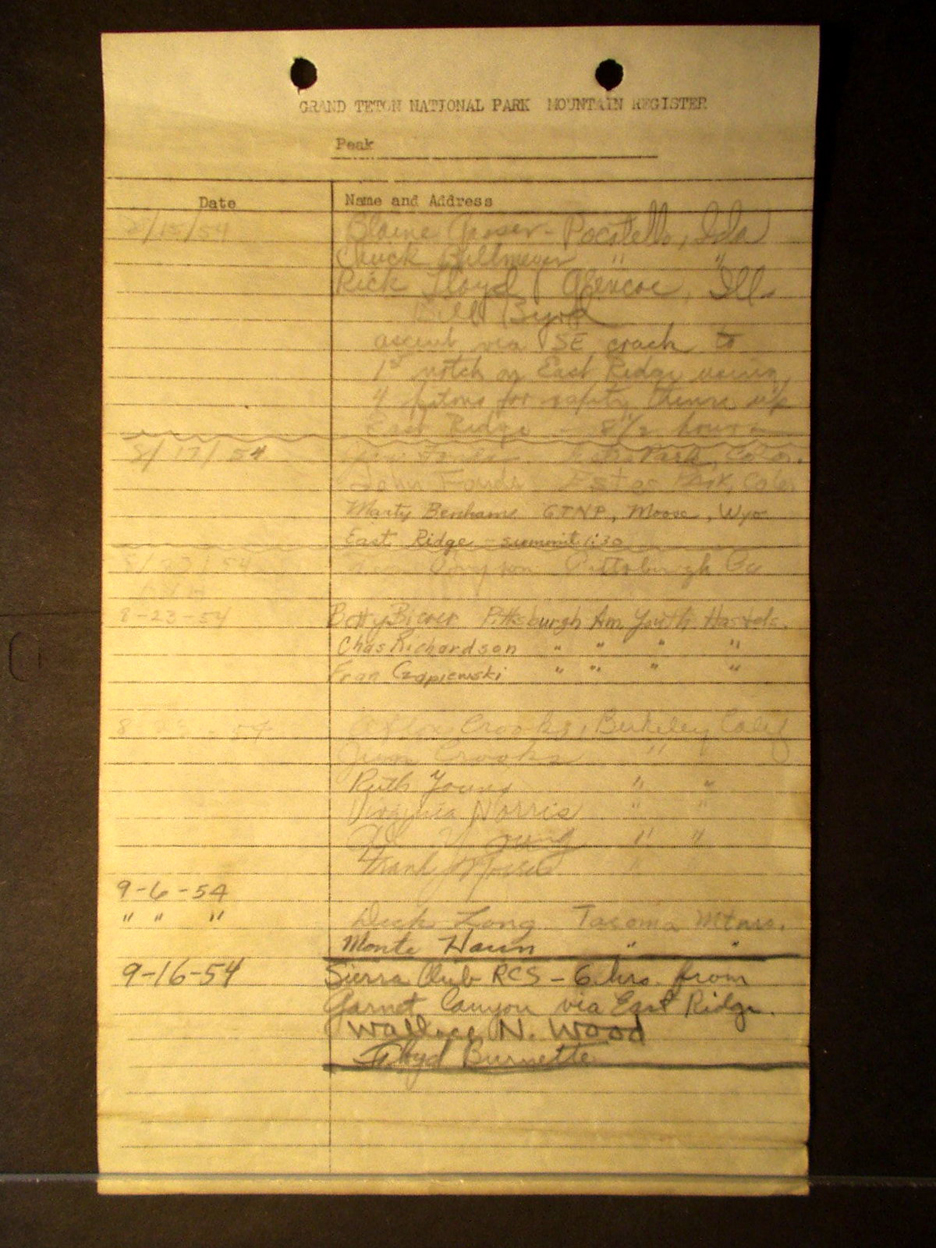 GRAND TETON NATIONAL PARK MOUNTAIN REGISTER
Peak
Date Name and Address
8/15/54 Blaine Gasser - Pocatello, Ida
Chuck " "
Rick Lloyd Glencoe, Ill.
Bill Byrd
ascent via SE crack to
1st notch on East Ridge using
4 pitons for safety thence up
East Ridge - 8 1/2 hours
8/17/54 Park, Color.
John Fonda Estes Park, Colo.
Marty Benham GTNP, Moose, Wyo.
East Ridge - summit 1:30
Pittsburgh Pa
8-23-54 Betty Bierer Pittsburgh Am Youth Hostels.
Chas Richardson " " " "
Fran Czapiewski " " " "
8-23-54 Crooks, Berkeley, Calif
Jim Crooks "
Ruth Young " "
Virginia Norris " "
Young " "
Frank Norris "
9-6-54
" " " Dick Long Tacoma Mtnrs.
Monte Haun " "
9-16-54 Sierra Club RCS - 6 hrs. from
Garnet Canyon via East Ridge.
Wallace N. Wood
Floyd Burnette